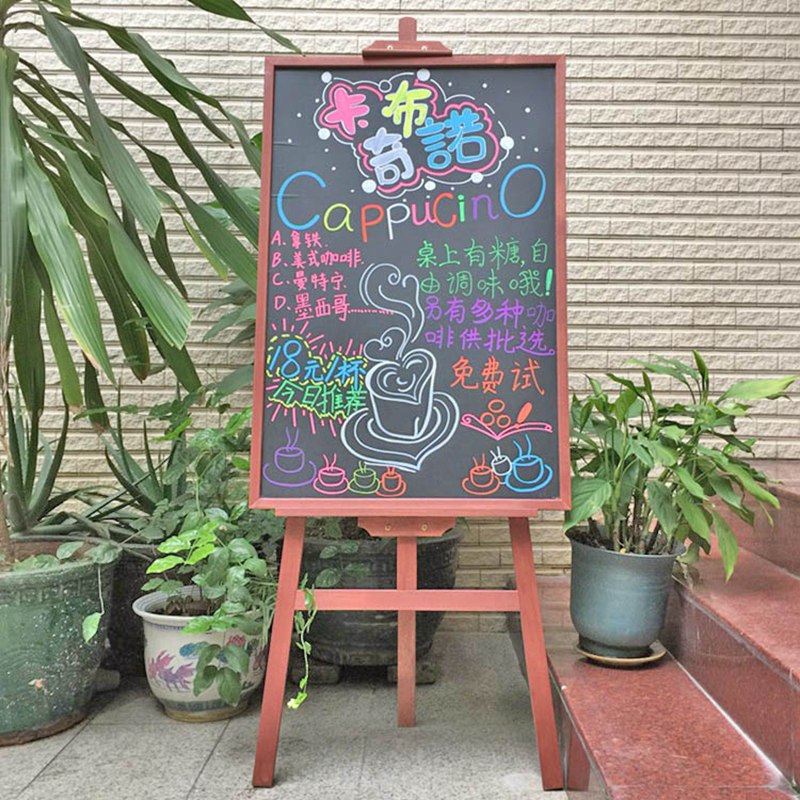 卡布
奇諾
CappucinO
A、拿铁.
B、美式咖啡.
C、曼特宁
D、墨西哥............
桌上有糖,自
由调味哦!
另有多种咖
啡供批选。
免费试
18元/杯
今日推荐